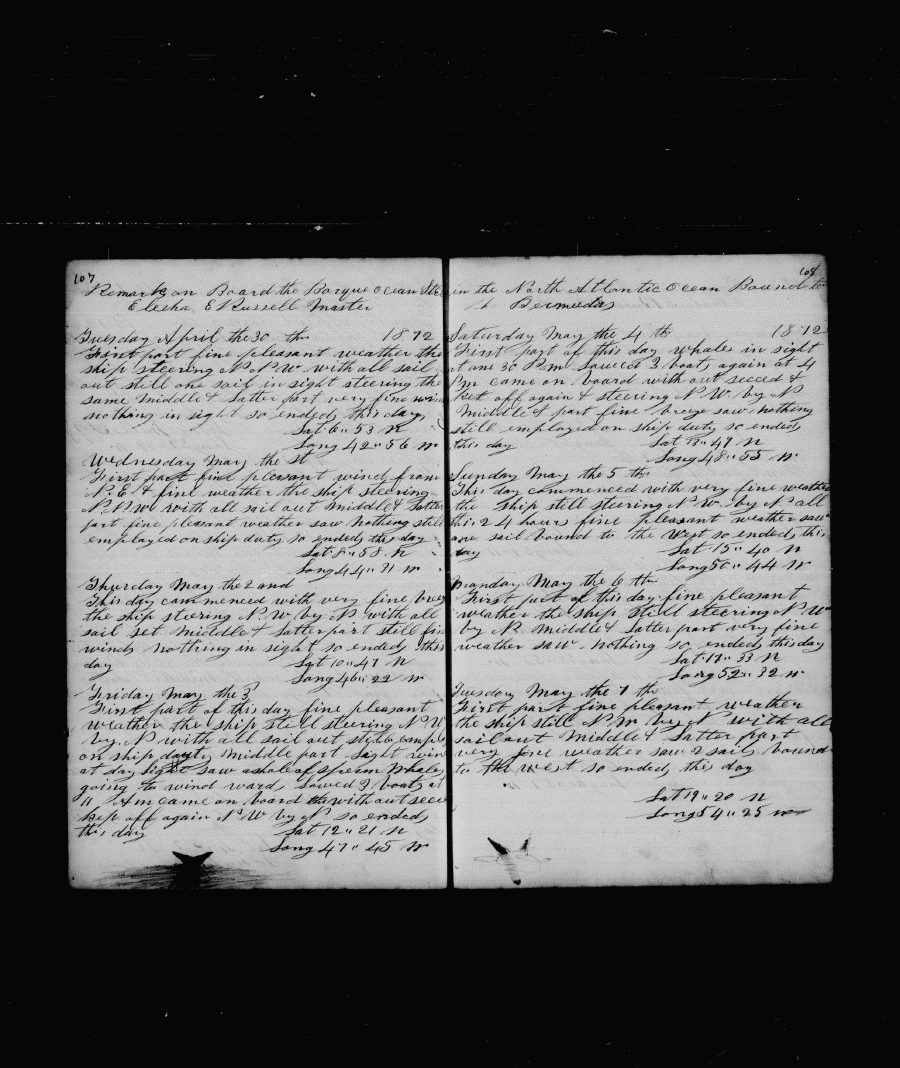 107
Remarks on Board the Barque Ocean
Elesha E Russell Master
Tuesday April the 30 th 1872
First part fine pleasant weather the
ship steering N N. W. with all sail
out still one sail in sight steering the
same Middle & latter part very fine win
nothing in sight so ended this day
Lat 6 " 53 N
Long 42 " 56 W
Wednesday May the 1st
First part fine pleasant wind from
N. E. & fine weather the ship steering
N. N. W. with all sail out middle & latter
part fine pleasant weather saw nothing still
employed on ship duty so ended this day
Lat 8 " 58 N
Long 44 " 31 W
Thursday May the 2 ond
This day commenced with very fine bree
the ship steering N. W. by N. with all
sail set middle & latter part still fin
winds nothing in sight so ended this
day
Lat 10 " 47 N
Long 46 " 22 W
Friday May the 3
First part of this day fine pleasant
weather the ship still steering N W
by N with all sail out still emplo
on ship duty Middle part light win
at day light saw a shole of sperm whales
going to wind ward Lowed 3 boats at
11 Am came on board without
kep off again N. W. by N so ended
this day
Lat 12 " 21 N
Long 47 " 45 W
108
in the North Atlantic Ocean Bound to
Bermudas
Saturday May the 4 th 1872
First part of this day whales in sight
at one 30 P.m Lowed 3 boats again at 4
Pm came on board with out secced &
kef off again & steering N W. by N
Middle & part fine breeze saw nothing
still employed on ship duty so ended
this day
Lat 13 " 49 N
Long 48 " 55 W
Sunday May the 5 th
This day commenced with very fine weather
the ship still steering N. W. by N all
this 24 hours fine pleasant weather saw
one sail bound to the West so ended this
day
Lat 15 " 40 N
Long 50 " 44 W
Monday May the 6 th
First part of this day fine pleasant
weather the ship still steering N. W
by N Middle & latter part very fine
weather saw nothing so ended this day
Lat 17 " 33 N
Long 52 " 32 W
Tuesday May the 7 th
First part fine pleasant weather
the ship still N. W by N with all
sail out Middle & latter part
very fine weather saw 2 sails bound
to the west so ended this day
Lat 19 " 20 N
Long 54 " 25 W